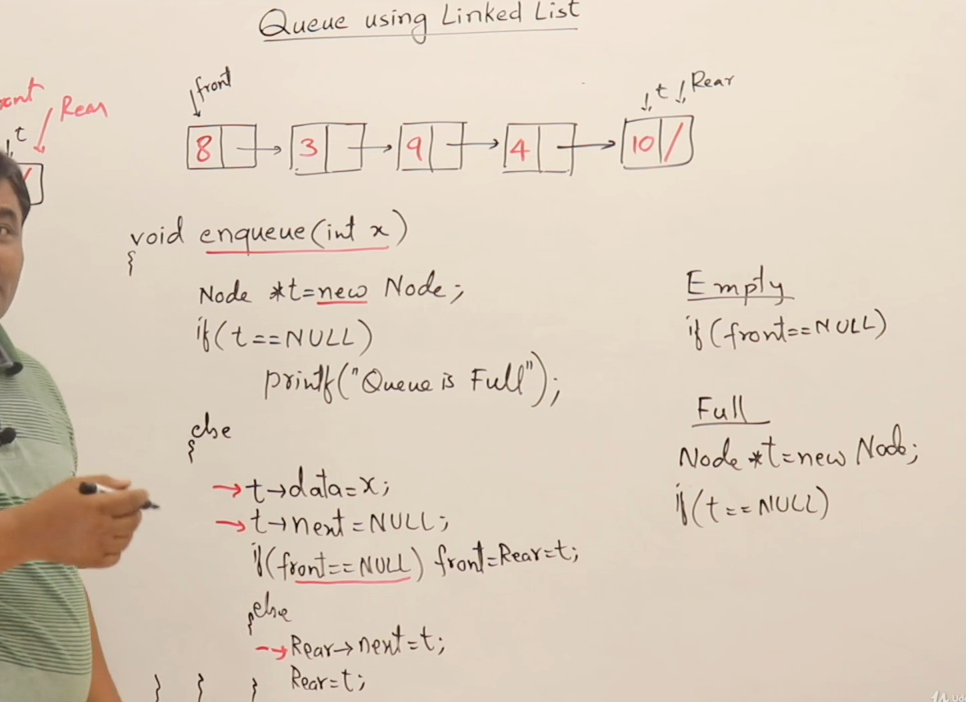 Queue using Linked List
front
t Rear
Rear
t
8 3 9 4 10 /
void enqueue(int x)
{
Node *t=new Node;
if(t==NULL)
printf("Queue is Full");
else
{
t→data=x;
t→next=NULL;
if(front==NULL) front=Rear=t;
else
{
Rear→next=t;
Rear=t;
} } }
Empty
if(front==NULL)
Full
Node *t=new Node;
if(t==NULL)